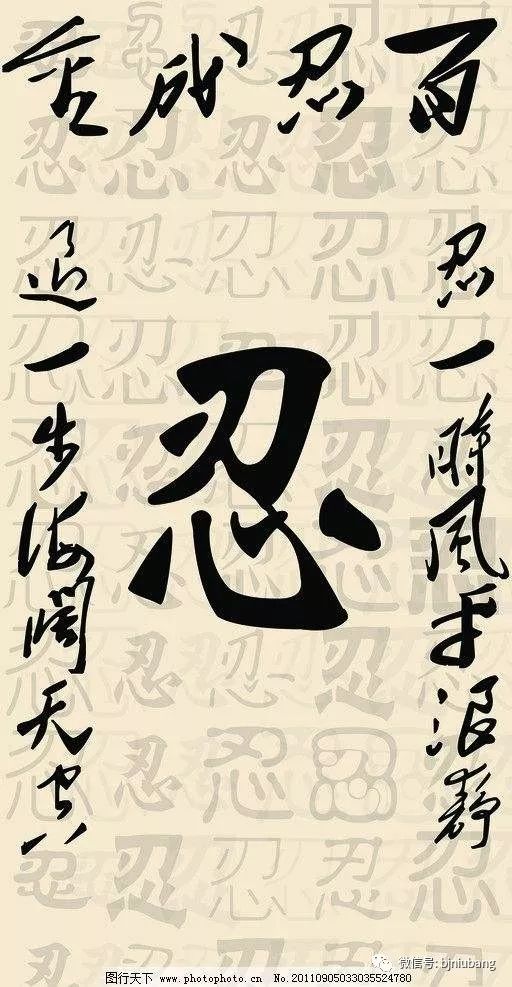 百忍成金
忍一時風平浪静
忍
退一步海闊天空
微信号: bjniubang
图行天下 www.photophoto.cn No.20110905033035524780